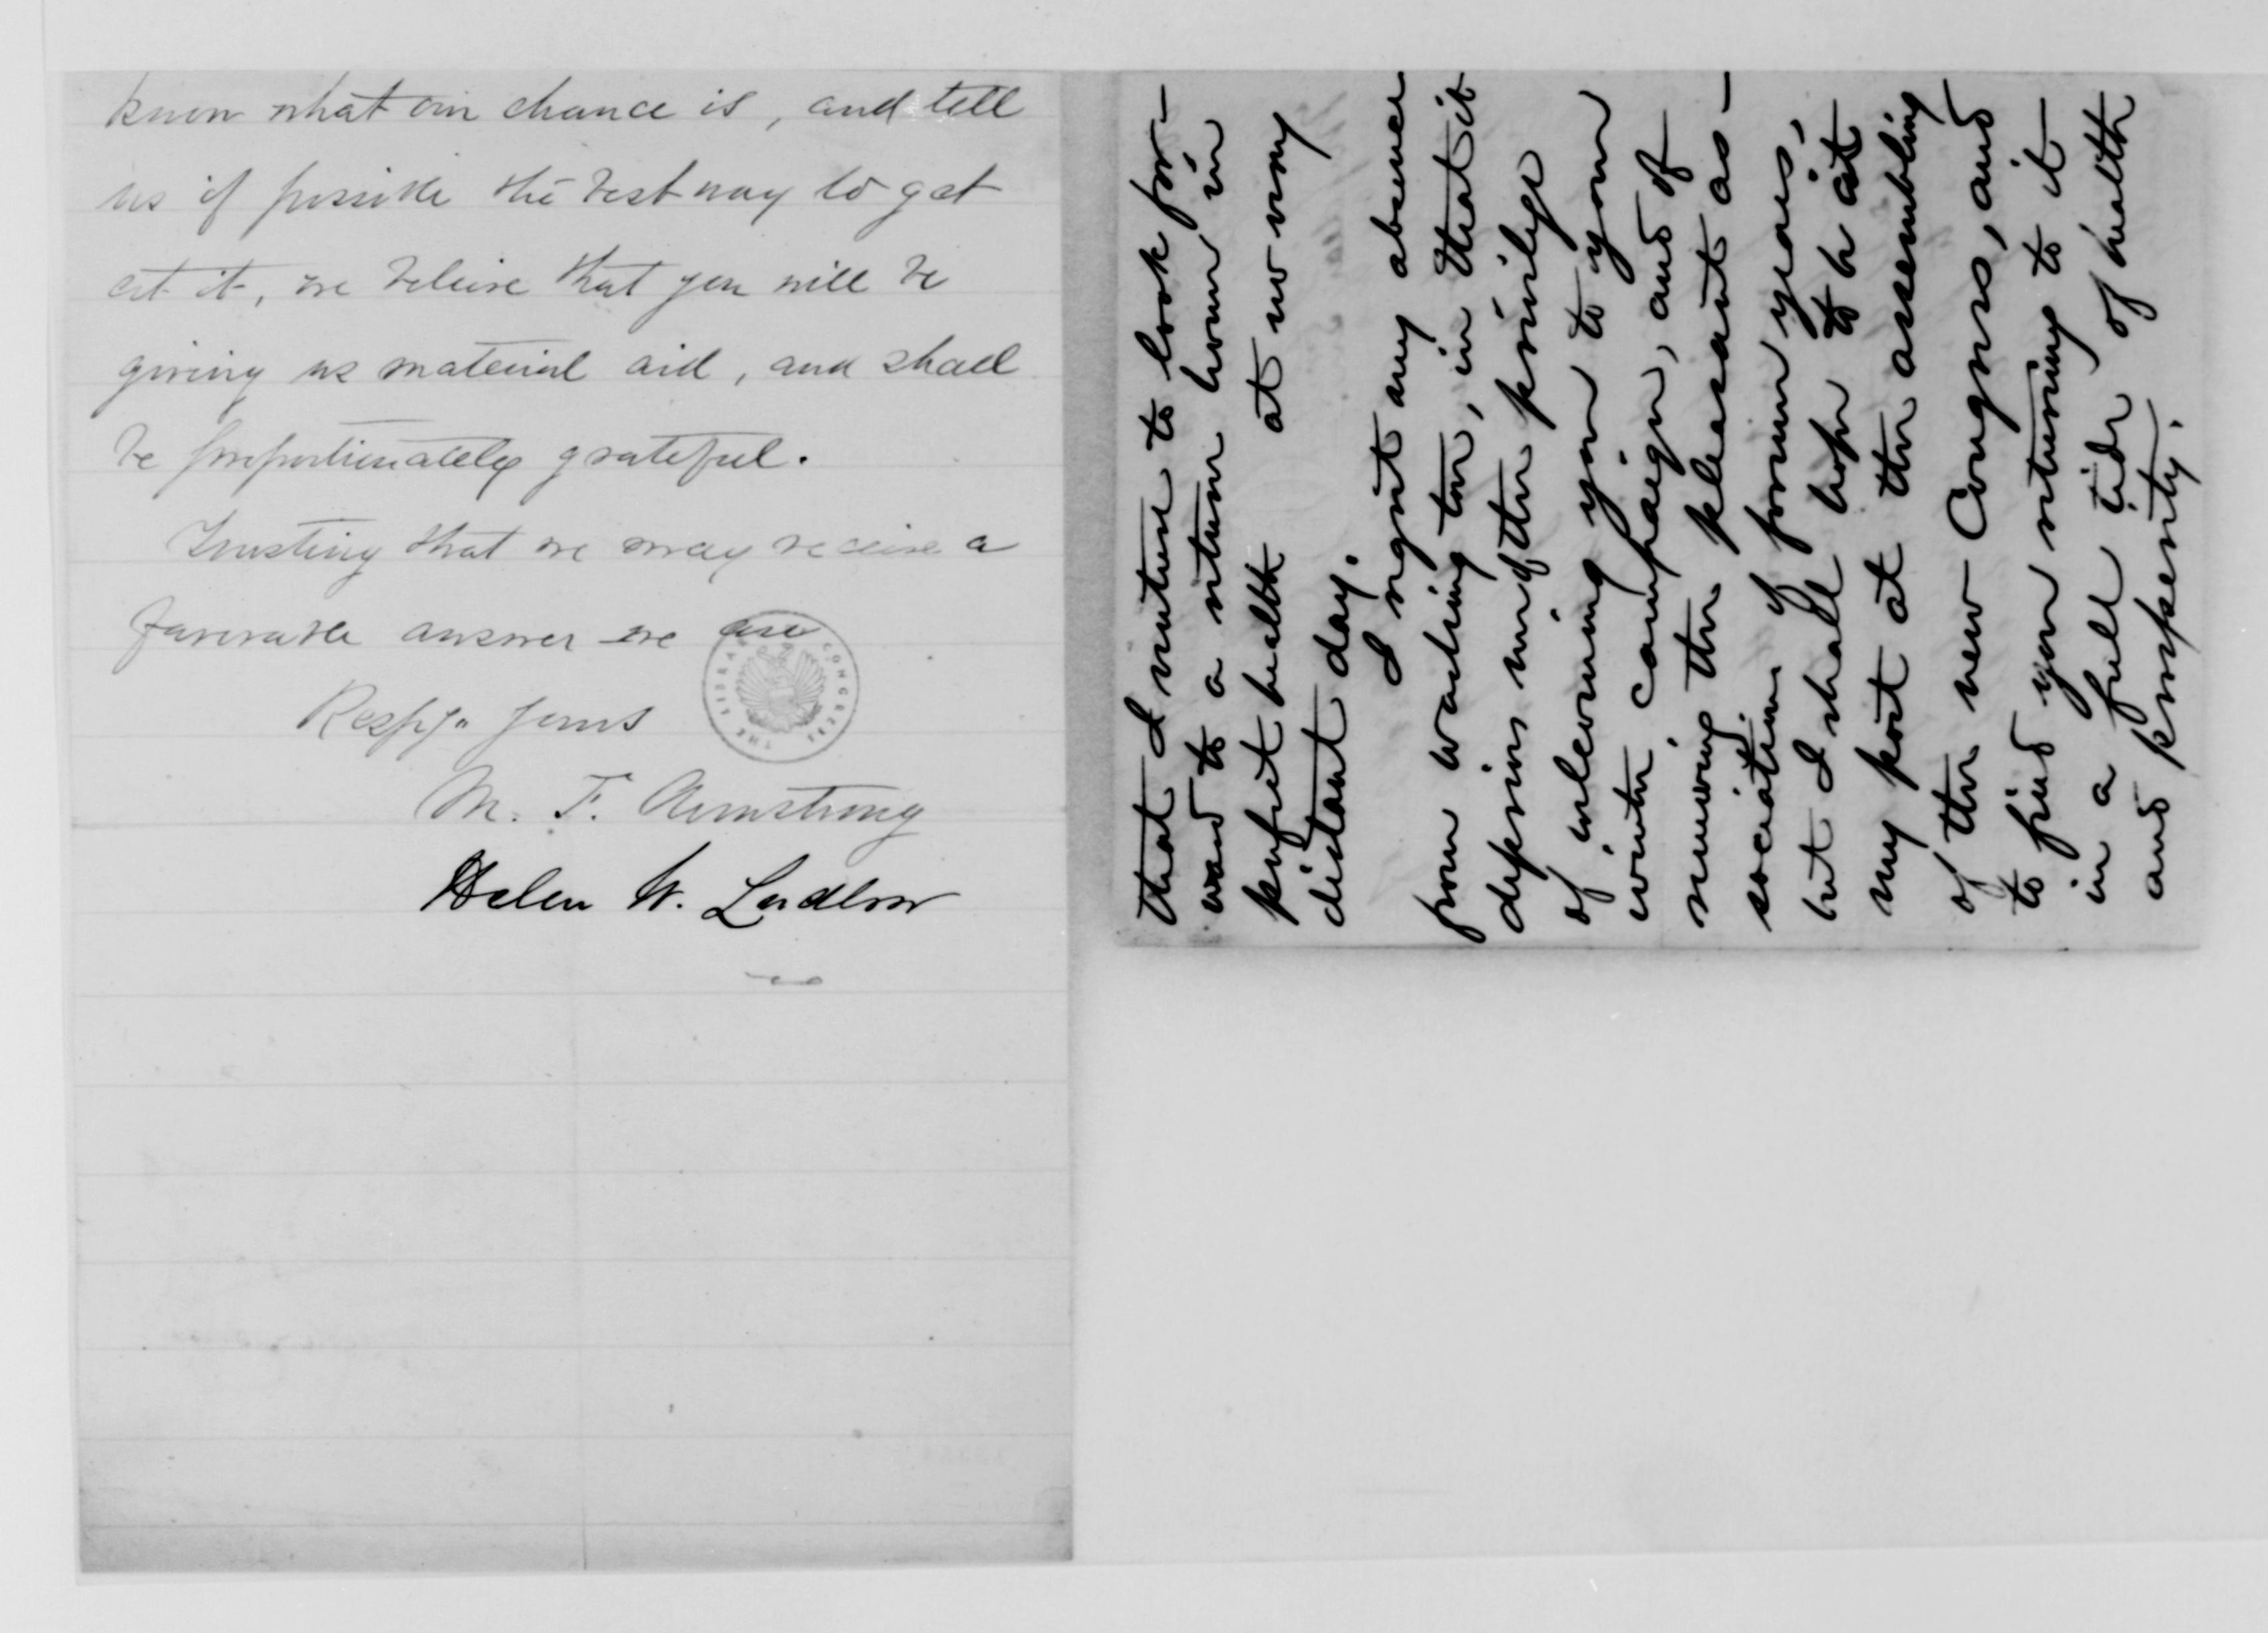 know what our chance is, and tell
us if possible the best way to get
at it, we believe that you will be
giving us material aid, and shall
be proportionately grateful.
Trusting that we may receive a
favorable answer we are
Respy. yours
M. F. Armstrong
Helen W. Ludlow
THE LIBRARY OF CONGRESS
that I venture to look for-
ward to a return home in
perfect health at no very
distant day.
I regret my absence
from Washington, in that it
deprives me of the privilege
of welcoming you to your
winter campaign, and of
renewing the pleasant as-
sociation of former years,
but I shall hope to be at
my post at the assembling
of the new Congress, and
to find you returning to it
in a full tide of health
and prosperity.